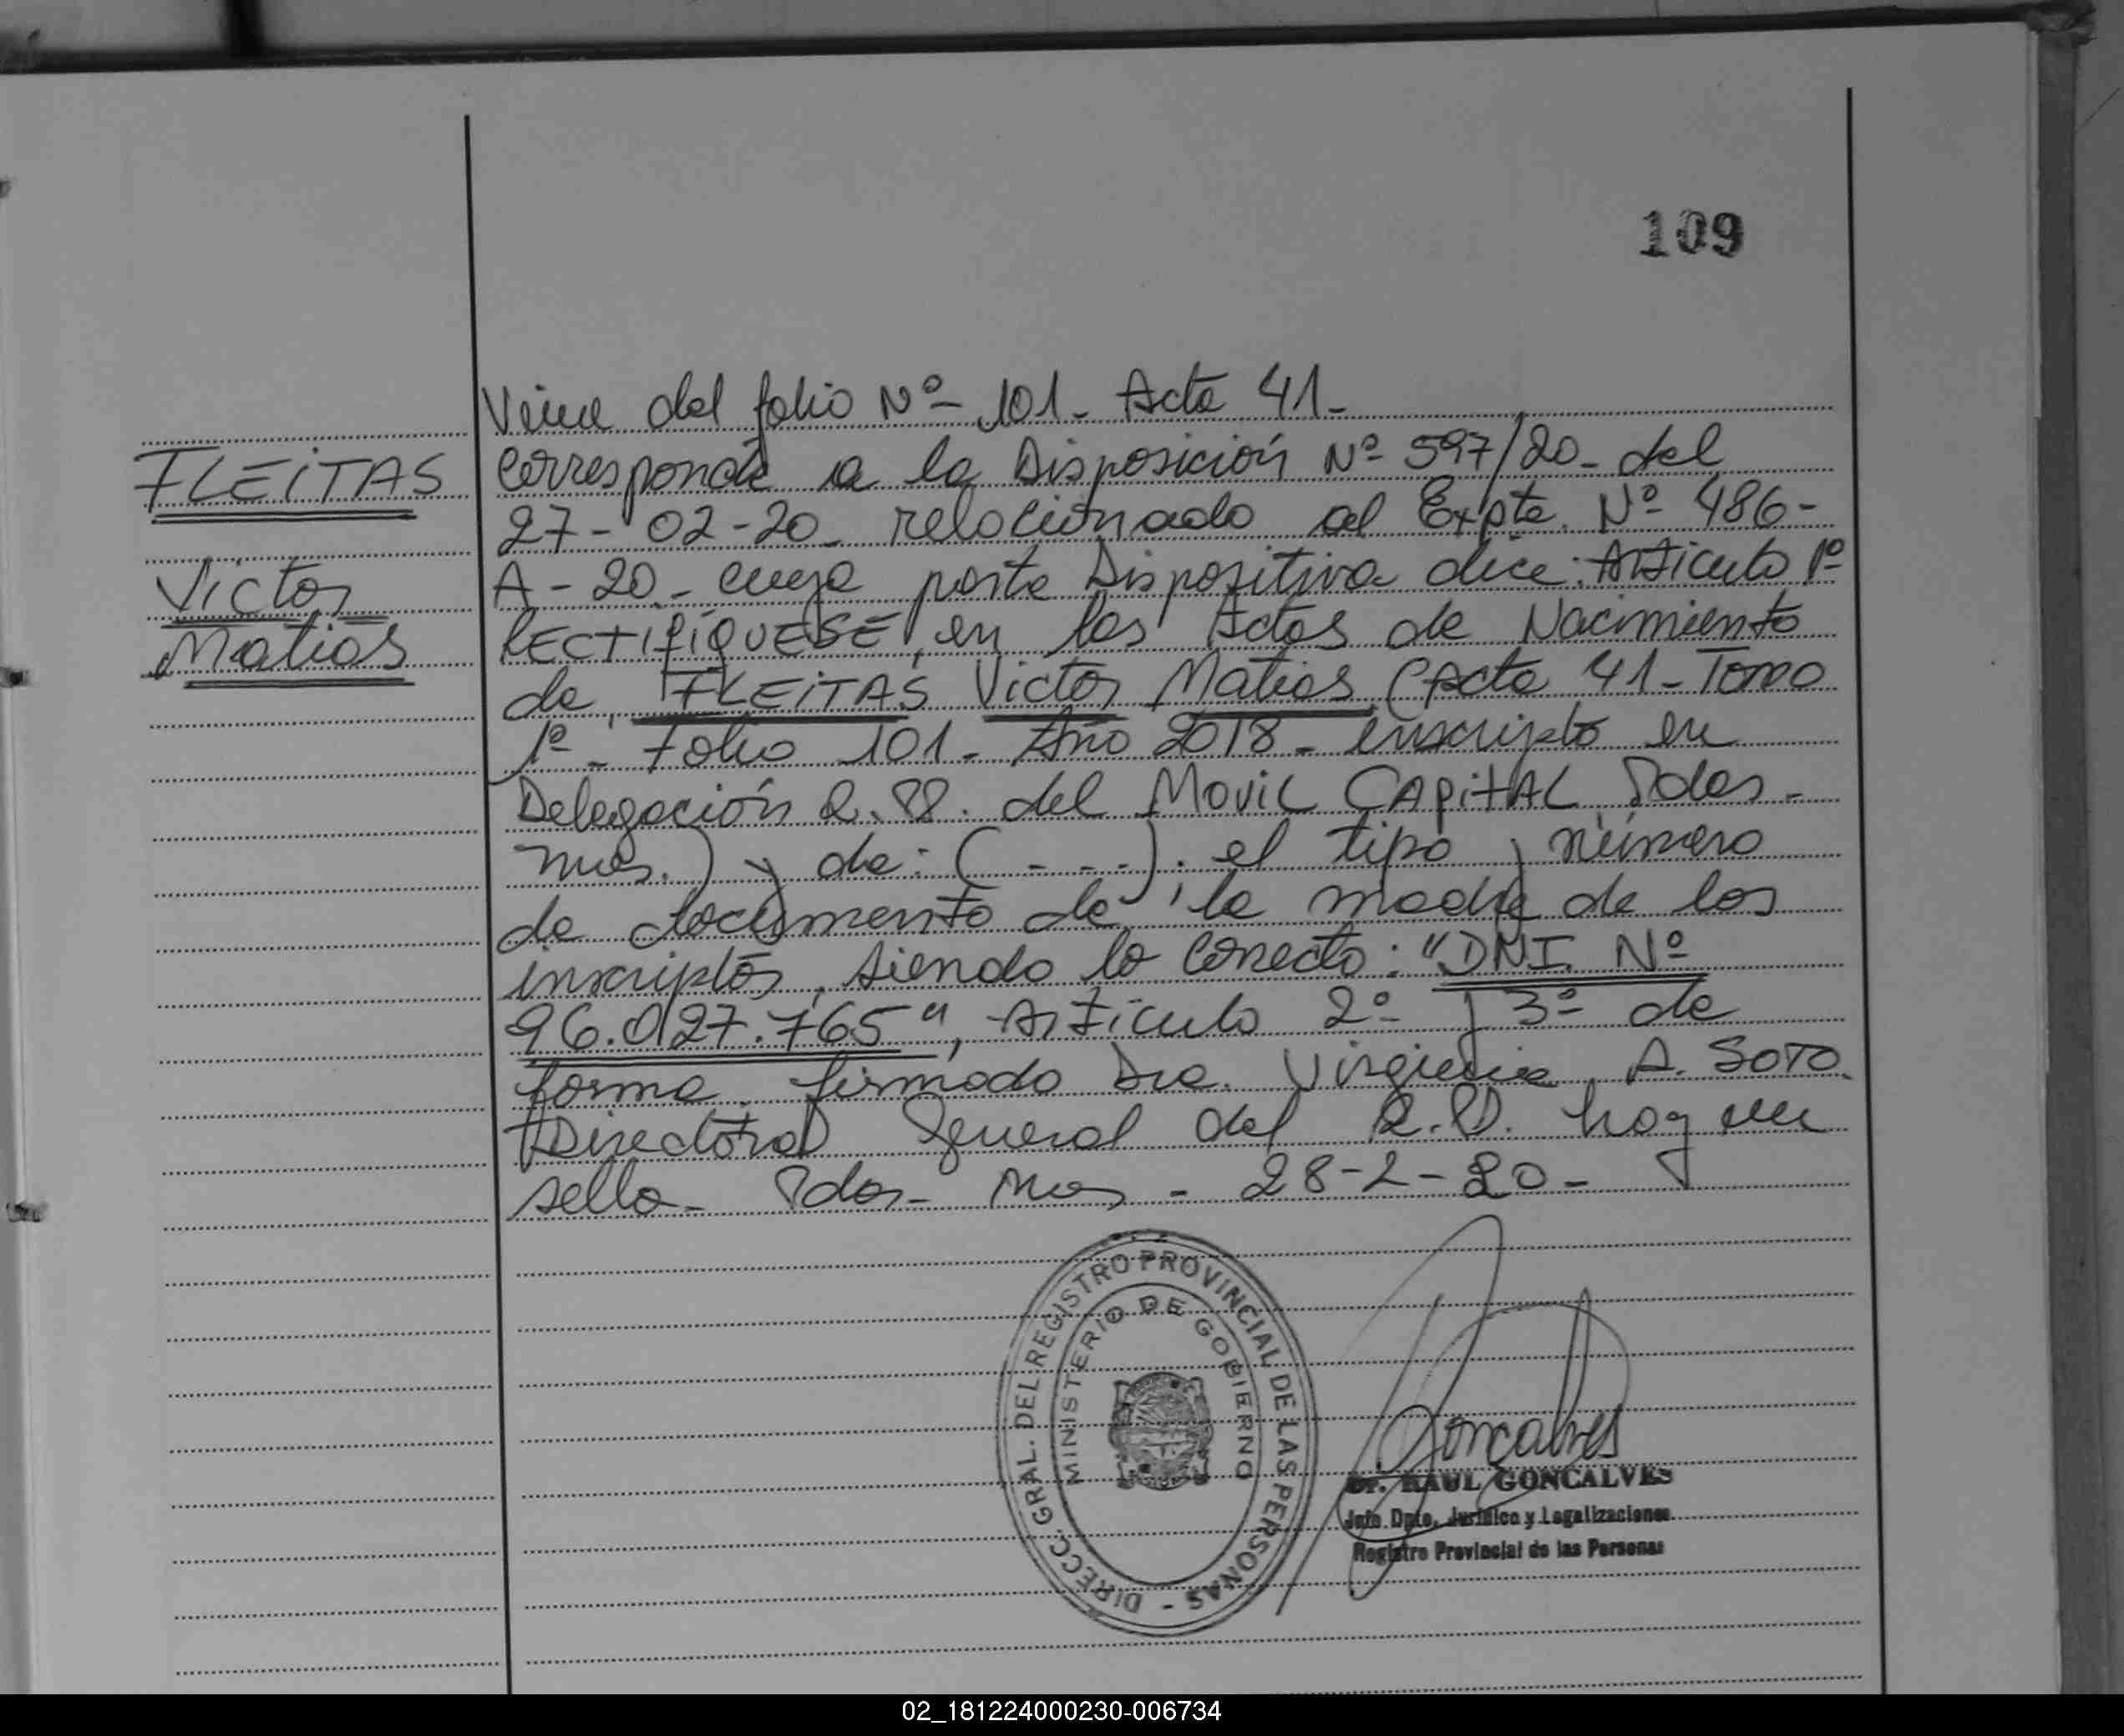 109
FLEITAS
Victor
Matias
Viene del folio Nº- 101- Acta 41-
Corresponde a la Disposición Nº 597/20- del
27-02-20- relacionado al Expte. Nº 486-
A-20- cuya parte Dispositiva dice: Artículo 1º
RECTIFÍQUESE, en las Actas de Nacimiento
de, FLEITAS Victor Matias (Acta 41- Tomo
1º- Folio 101- Año 2018- inscripto en
Delegación R.PP. del Movil CAPITAL Pdas-
mes.) y de: (----); el tipo y número
de documento de la madre de los
inscriptos, siendo lo correcto: "DNI. Nº
96.027.765", Artículo 2º y 3º de
forma. firmado Dra. Virginia A. SOTO.
Directora General del R.P. hay un
sello- Pdas- Mnes- 28-2-20-
DIRECC. GRAL. DEL REGISTRO PROVINCIAL DE LAS PERSONAS -
MINISTERIO DE GOBIERNO
Goncalves
Dr. RAUL GONCALVES
Jefe Dpto. Jurídico y Legalizaciones
Registro Provincial de las Personas
02_181224000230-006734